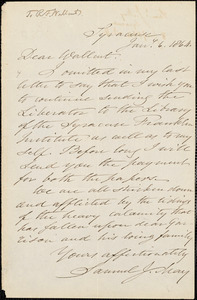 To R. F. Wallcut.
Syracuse
Jan. 6. 1864.
Dear Wallcut:
I omitted in my last
letter to say that I wish you
to continue sending the
Liberator to the Library
of the Syracuse Franklin
Institute as well as to my
self. Before long I will
send you the payment
for both the papers.
We are all stricken down
and afflicted by the tidings
of the heavy calamity that
has fallen upon dear Gar
rison and his loving family
Yours affectionately
Samuel J. May